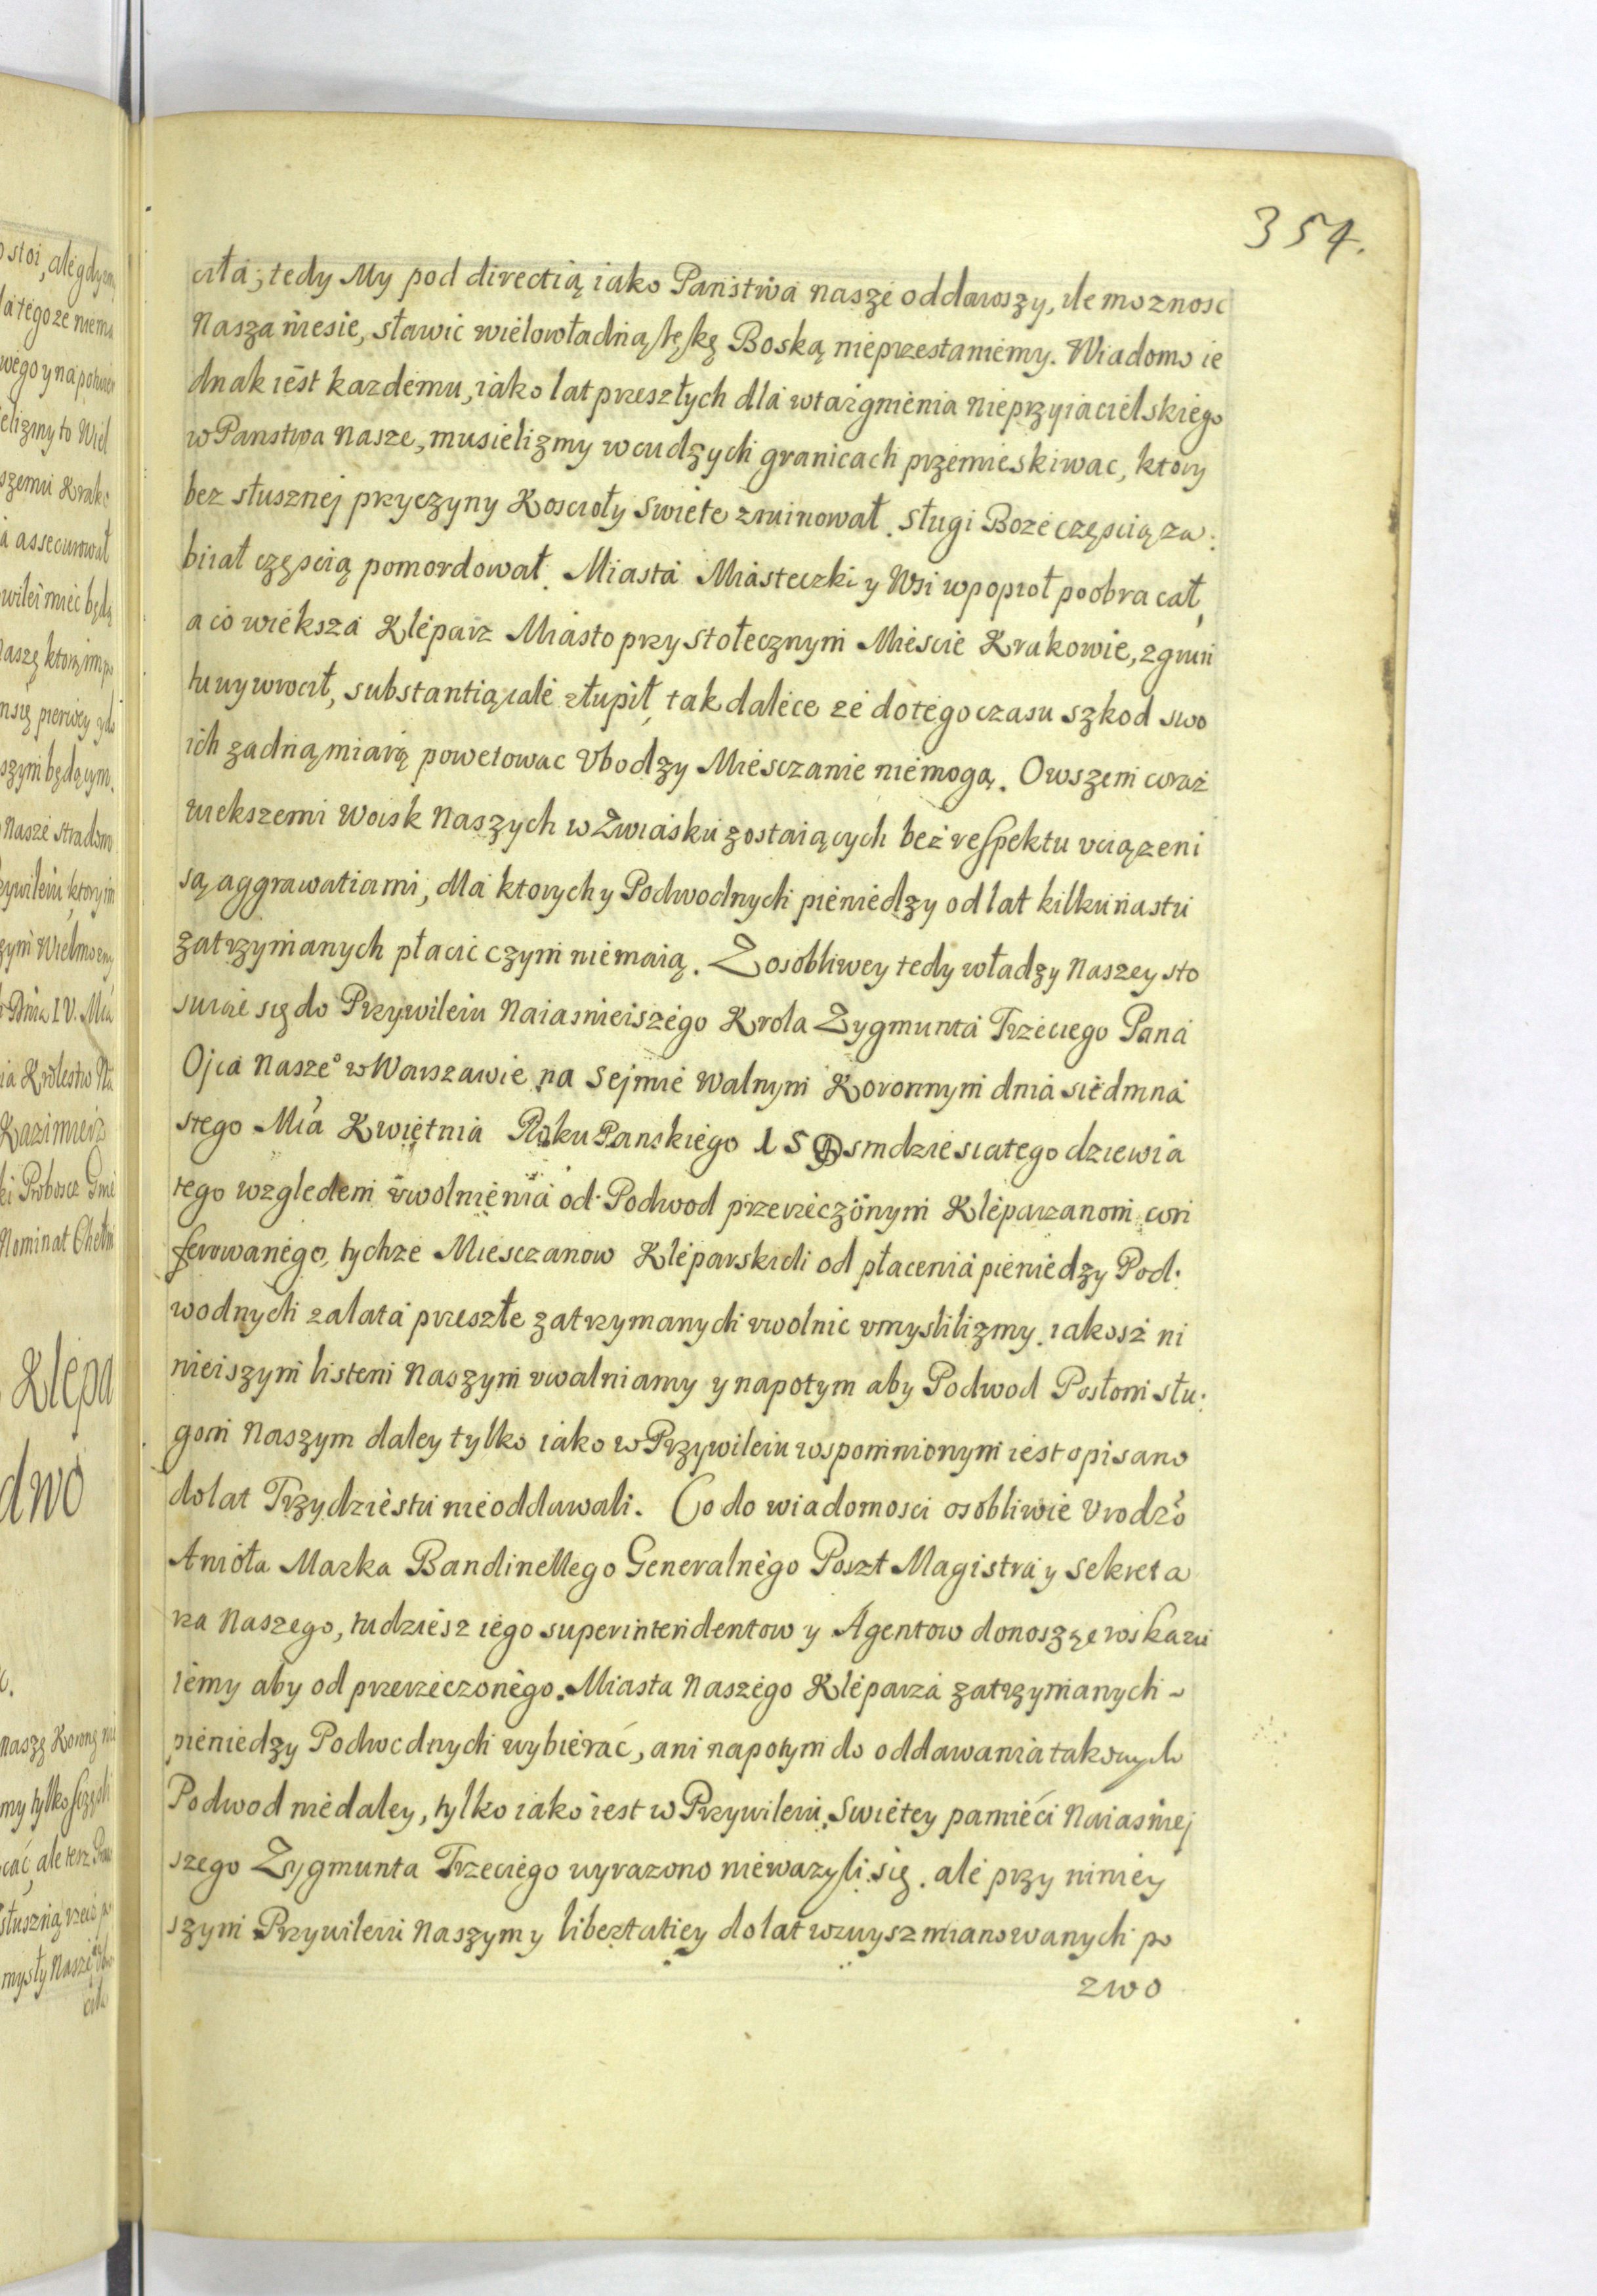 354.
ciła; tedy My pod directią iako Państwa nasze oddawszy, ile moznosc
Nasza niesie, sławić wielowładną ręke Boską nieprzestaniemy. Wiadomo ie
dnak iest kazdemu, iako lat przeszłych dla wtargnienia nieprzyiacielskiego
w Panstwa Nasze, musielizmy w cudzych granicach przemieskiwac, ktory
bez słusznej przyczyny Koscioły Swiete zruinował. Sługi Boze częscią za:
birał częscią pomordował. Miasta Miasteczki y Wsi w popioł poobracał,
a co wieksza Kleparz Miasto przy stołecznym Miescie Krakowie, z grun
tu wywrocił, substantią cale złupił, tak dalece ze do tego czasu szkod swo
ich zadną miarą powetowac Vbodzy Miesczanie niemogą. Owszem coraz
wiekszemi Woisk Naszych w Zwiasku zostaiących bez respektu vciązeni
są aggrawatiami, dla ktorych y Podwodnych pieniedzy od lat kilkunastu
zatrzymanych płacic czym niemaią. Z osobliwey tedy władzy Naszey sto
suiąc się do Przywileiu Naiasnieiszego Krola Zygmunta Trzeciego Pana
Ojca Nasze° w Warszawie na Sejmie Walnym Koronnym dnia siedmna
stego Mca Kwietnia Roku Panskiego 15 Osmdziesiatego dziewia
tego wzgledem vwolnienia od Podwod przerzeczonym Kleparzanom con
ferowanego, tychze Miesczanow Kleparskich od płacenia pieniedzy Pod:
wodnych za lata przeszłe zatrzymanych vwolnic vmyslilizmy. iakosz ni
nieiszym listem Naszym vwalniamy y napotym aby Podwod Posłom słu:
gom Naszym daley tylko iako w Przywileiu wspomnionym iest opisano
do lat Trzydziestu nieoddawali. Co do wiadomosci osobliwie Vrodz°
Anioła Marka Bandinellego Generalnego Poszt Magistra y Sekreta
rza Naszego, tudziesz iego superintendentow y Agentow donosząc roskazu
iemy aby od przerzeczonego Miasta Naszego Kleparza zatrzymanych
pieniedzy Podwodnych wybierać, ani napotym do oddawania takowych
Podwod niedaley, tylko iako iest w Przywileiu Swietey pamięci Naiasniej
szego Zygmunta Trzeciego wyrazono niewazyli się. ale przy niniey
szym Przywileiu Naszym y libertatiey do lat wzwysz mianowanych po
zwo